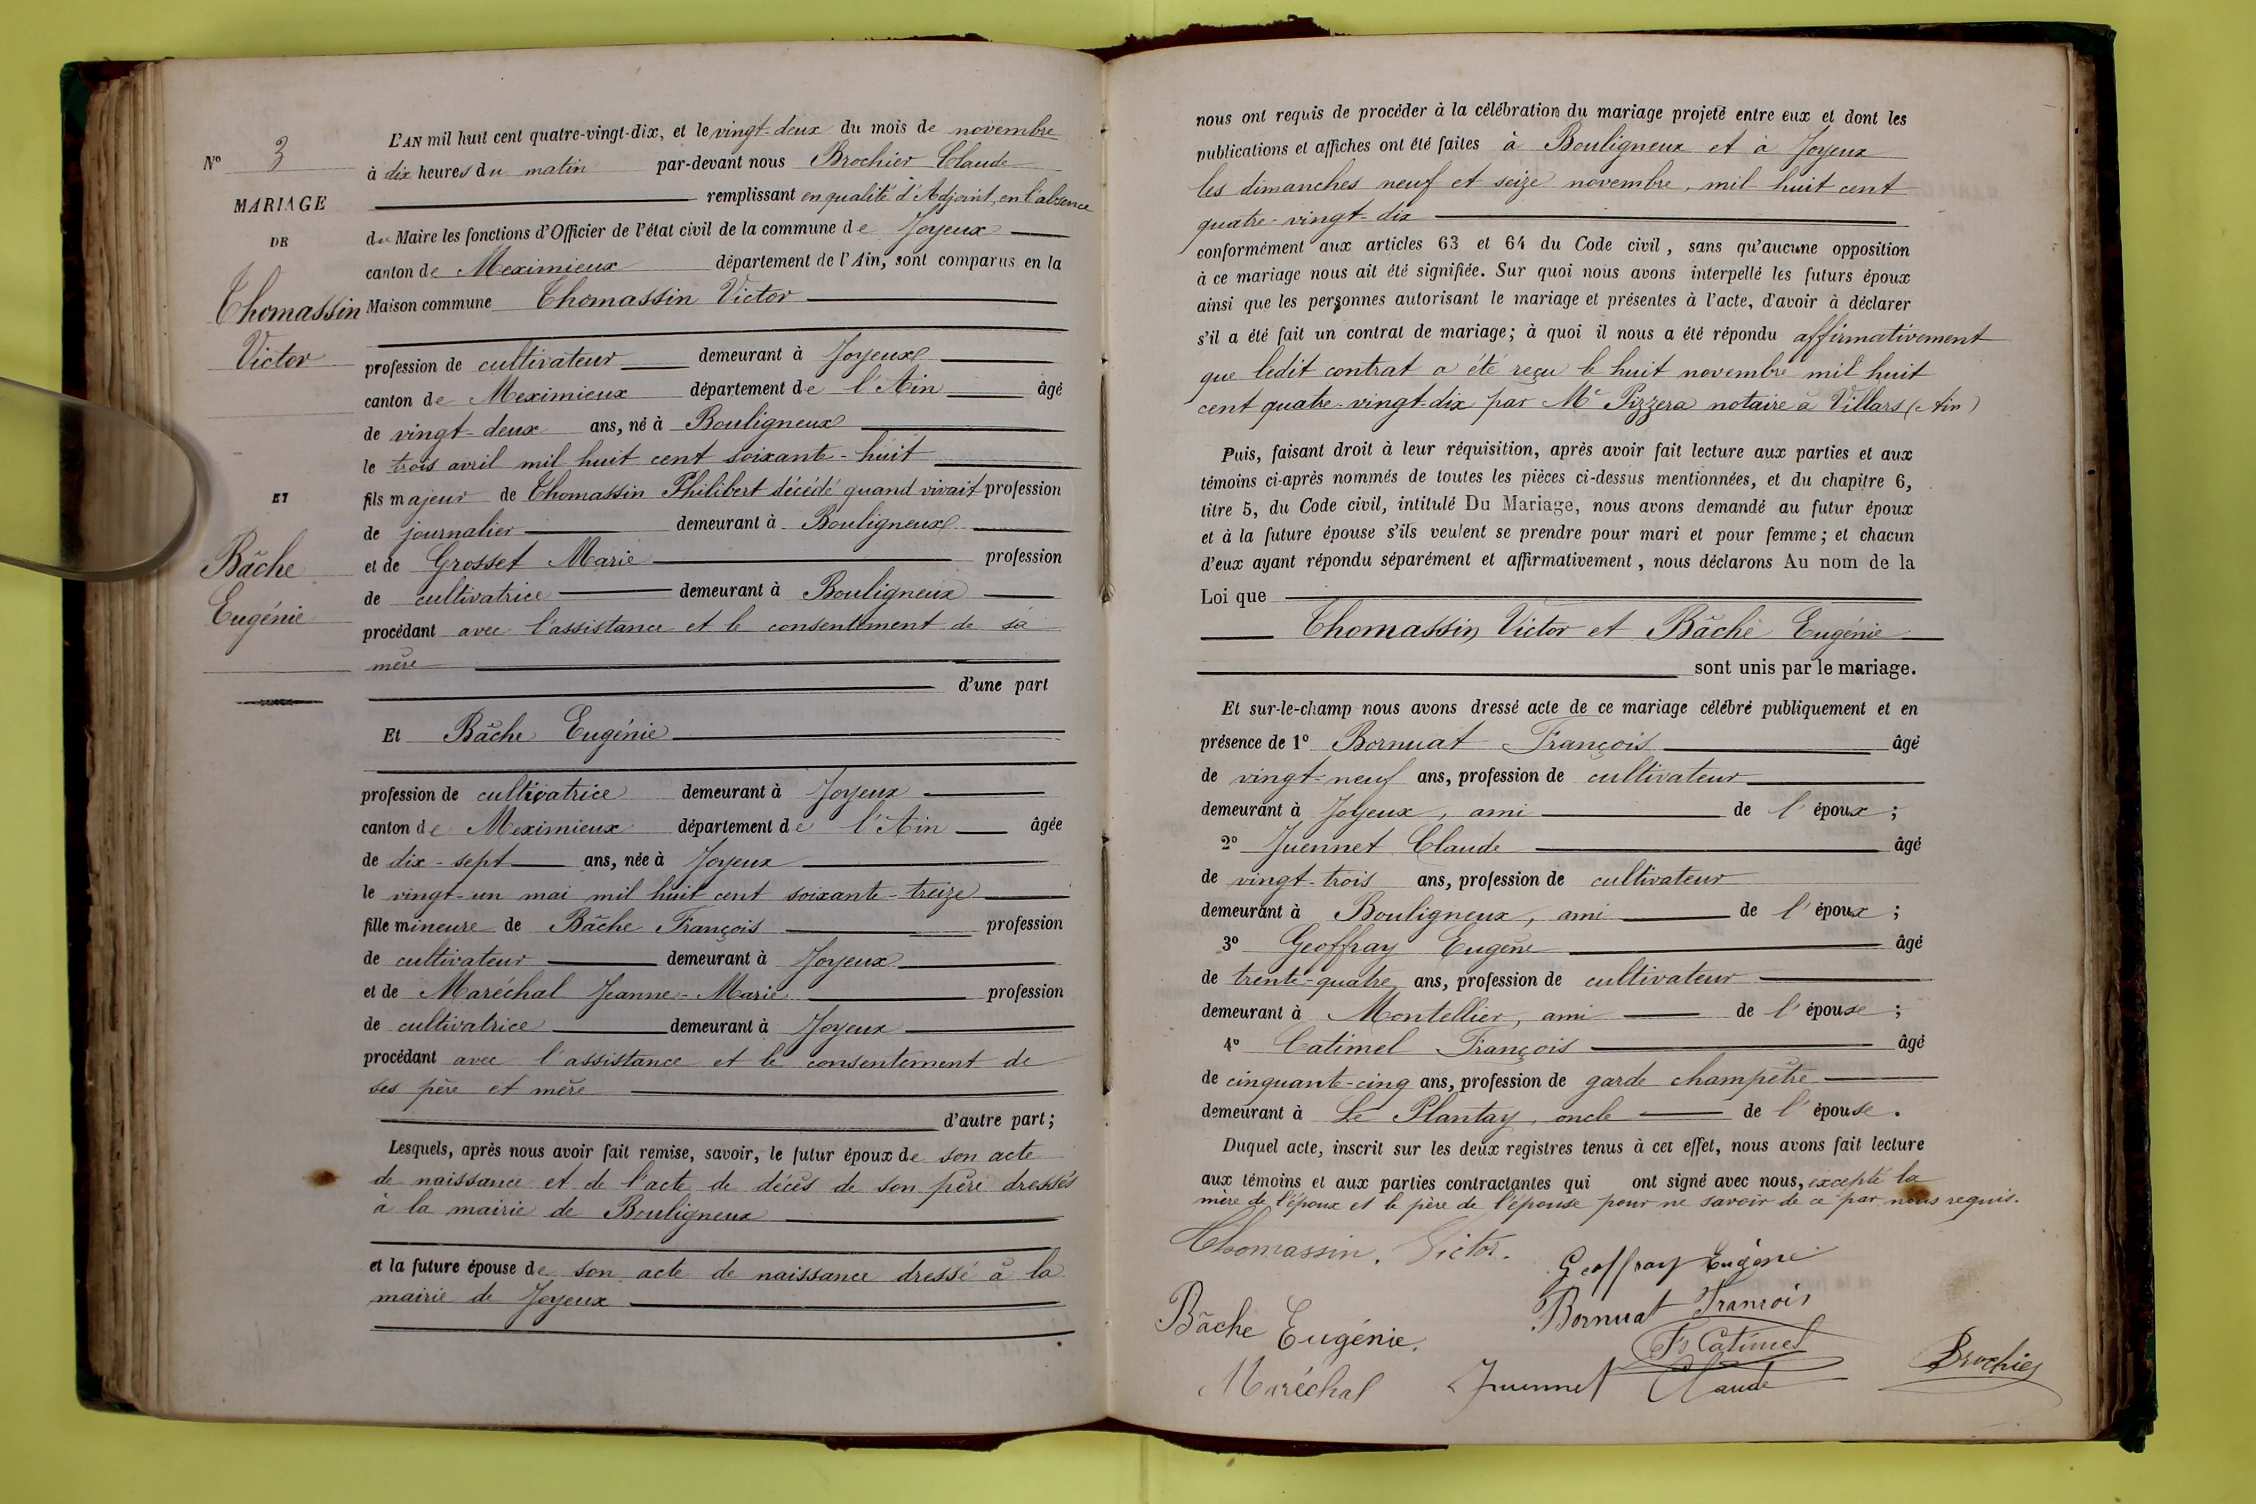 N° 3
MARIAGE
DE
Thomassin
Victor
ET
Bâche
Eugénie
L'AN mil huit cent quatre-vingt-dix, et le vingt-deux du mois de novembre
à dix heures du matin par-devant nous Brochier Claude
remplissant en qualité d'Adjoint, en l'absence
du Maire les fonctions d'Officier de l'état civil de la commune de Joyeux
canton de Meximieux département de l'Ain, sont comparus en la
Maison commune Thomassin Victor
profession de cultivateur demeurant à Joyeux
canton de Meximieux département de l'Ain âgé
de vingt-deux ans, né à Bouligneux
le trois avril mil huit cent soixante-huit
fils majeur de Thomassin Philibert décédé quand vivait profession
de journalier demeurant à Bouligneux
et de Grosset Marie profession
de cultivatrice demeurant à Bouligneux
procédant avec l'assistance et le consentement de sa
mère
d'une part
Et Bâche Eugénie
profession de cultivatrice demeurant à Joyeux
canton de Meximieux département de l'Ain âgée
de dix-sept ans, née à Joyeux
le vingt-un mai mil huit cent soixante-treize
fille mineure de Bâche François profession
de cultivateur demeurant à Joyeux
et de Maréchal Jeanne-Marie profession
de cultivatrice demeurant à Joyeux
procédant avec l'assistance et le consentement de
ses père et mère
d'autre part;
Lesquels, après nous avoir fait remise, savoir, le futur époux de son acte
de naissance et de l'acte de décès de son père dressés
à la mairie de Bouligneux
et la future épouse de son acte de naissance dressé à la
mairie de Joyeux
nous ont requis de procéder à la célébration du mariage projeté entre eux et dont les
publications et affiches ont été faites à Bouligneux et à Joyeux
les dimanches neuf et seize novembre, mil huit cent
quatre-vingt-dix
conformément aux articles 63 et 64 du Code civil, sans qu'aucune opposition
à ce mariage nous ait été signifiée. Sur quoi nous avons interpellé les futurs époux
ainsi que les personnes autorisant le mariage et présentes à l'acte, d'avoir à déclarer
s'il a été fait un contrat de mariage; à quoi il nous a été répondu affirmativement
que ledit contrat a été reçu le huit novembre mil huit
cent quatre-vingt-dix par Me Pizzera notaire à Villars (Ain)
Puis, faisant droit à leur réquisition, après avoir fait lecture aux parties et aux
témoins ci-après nommés de toutes les pièces ci-dessus mentionnées, et du chapitre 6,
titre 5, du Code civil, intitulé Du Mariage, nous avons demandé au futur époux
et à la future épouse s'ils veulent se prendre pour mari et pour femme; et chacun
d'eux ayant répondu séparément et affirmativement, nous déclarons Au nom de la
Loi que
Thomassin Victor et Bâche Eugénie
sont unis par le mariage.
Et sur-le-champ nous avons dressé acte de ce mariage célébré publiquement et en
présence de 1° Bornuat François âgé
de vingt-neuf ans, profession de cultivateur
demeurant à Joyeux, ami de l'époux;
2° Juennet Claude âgé
de vingt-trois ans, profession de cultivateur
demeurant à Bouligneux, ami de l'époux;
3° Geoffray Eugène âgé
de trente-quatre ans, profession de cultivateur
demeurant à Montellier, ami de l'épouse;
4° Catimel François âgé
de cinquante-cinq ans, profession de garde champêtre
demeurant à Le Plantay, oncle de l'épouse.
Duquel acte, inscrit sur les deux registres tenus à cet effet, nous avons fait lecture
aux témoins et aux parties contractantes qui ont signé avec nous, excepté la
mère de l'époux et le père de l'épouse pour ne savoir de ce par nous requis.
Thomassin. Victor. Geoffray Eugène
Bâche Eugénie. Bornuat François
Fs Catimel
Maréchal Juennet Claude Brochier